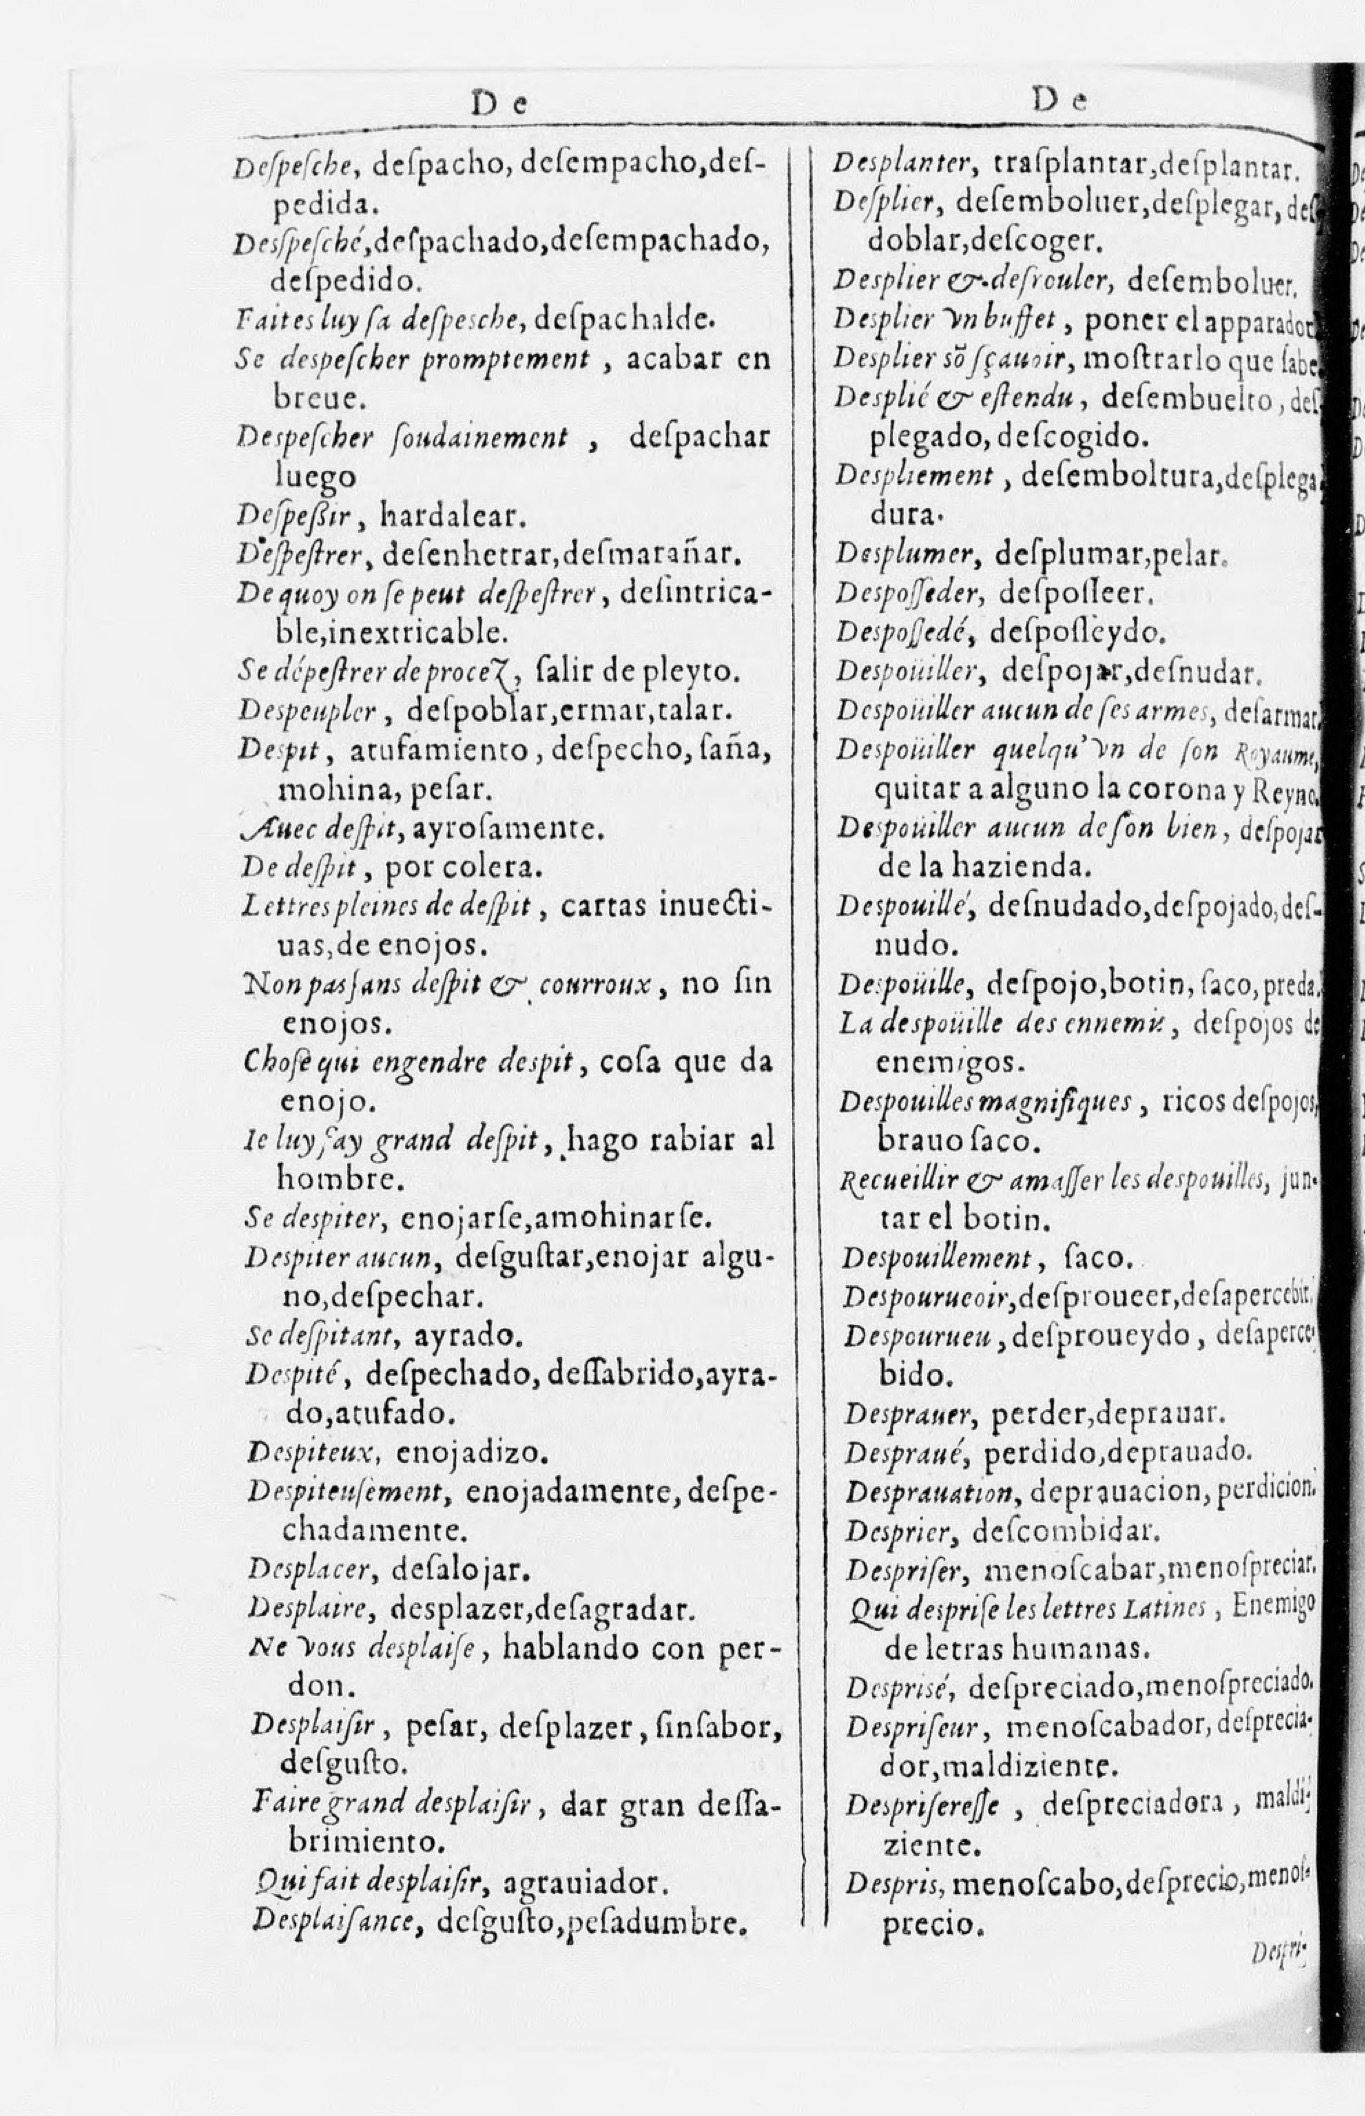 De
Deſpeſche, deſpacho, deſempacho,deſ-
pedida.
Desſpeſché,deſpachado,deſempachado,
deſpedido.
Faites luy ſa deſpesche, deſpachalde.
Se despeſcher promptement , acabar en
breue.
Despeſcher ſoudainement , deſpachar
luego
Deſpeßir, hardalear.
Deſpeſtrer, deſenhetrar,deſmarañar.
De quoy on ſe peut deſpeſtrer, deſintrica-
ble,inextricable.
Se dépeſtrer de procez, ſalir de pleyto.
Despeupler , deſpoblar,ermar,talar.
Despit, atufamiento , deſpecho, ſaña,
mohina, peſar.
Auec deſpit, ayroſamente.
De deſpit , por colera.
Lettres pleines de deſpit , cartas inuecti-
uas,de enojos.
Non pas ſans deſpit & courroux , no ſin
enojos.
Choſe qui engendre despit, coſa que da
enojo.
Ie luy fay grand deſpit, hago rabiar al
hombre.
Se despiter, enojarſe,amohinarſe.
Despiter aucun, deſguſtar,enojar algu-
no,deſpechar.
Se deſpitant, ayrado.
Despité, deſpechado, deſſabrido,ayra-
do,atufado.
Despiteux, enojadizo.
Despiteuſement, enojadamente, deſpe-
chadamente.
Desplacer, deſalojar.
Desplaire, desplazer,deſagradar.
Ne vous desplaiſe , hablando con per-
don.
Desplaiſir , peſar, deſplazer , ſinſabor,
deſguſto.
Faire grand desplaiſir , dar gran deſſa-
brimiento.
Qui fait desplaiſir, agrauiador.
Desplaiſance, deſguſto,peſadumbre.
De
Desplanter, traſplantar,deſplantar.
Deſplier, deſemboluer,deſplegar, deſ
doblar,deſcoger.
Desplier & deſrouler, deſemboluer.
Desplier vn buffet , poner el apparador
Desplier sõ ſçauoir, moſtrarlo que ſabe
Desplié & eſtendu , deſembuelto, deſ
plegado, deſcogido.
Despliement , deſemboltura,deſplega
dura.
Desplumer, deſplumar,pelar.
Despoſſeder, deſpoſſeer.
Despoſſedé, deſpoſſeydo.
Despoüiller, deſpojar,deſnudar.
Despoüiller aucun de ſes armes, deſarmar.
Despoüiller quelqu' vn de ſon Royaume,
quitar a alguno la corona y Reyno.
Despoüiller aucun de ſon bien , deſpojar
de la hazienda.
Despouillé, deſnudado,deſpojado,deſ-
nudo.
Despoüille, deſpojo,botin, ſaco,preda.
La despoüille des ennemis , deſpojos de
enemigos.
Despouilles magnifiques , ricos deſpojos,
brauo ſaco.
Recueillir & amaſſer les despouilles, jun-
tar el botin.
Despouillement , ſaco.
Despourueoir,deſproueer,deſapercebir.
Despourueu , deſproueydo , deſaperce-
bido.
Desprauer, perder,deprauar.
Desprauέ, perdido,deprauado.
Desprauation, deprauacion, perdicion.
Desprier, deſcombidar.
Despriſer, menoſcabar,menoſpreciar.
Qui despriſe les lettres Latines , Enemigo
de letras humanas.
Desprisé, deſpreciado,menoſpreciado.
Despriſeur , menoſcabador, deſprecia-
dor,maldiziente.
Despriſereſſe , deſpreciadora , maldi-
ziente.
Despris, menoſcabo,deſprecio,menoſ-
precio.
Deſpri-